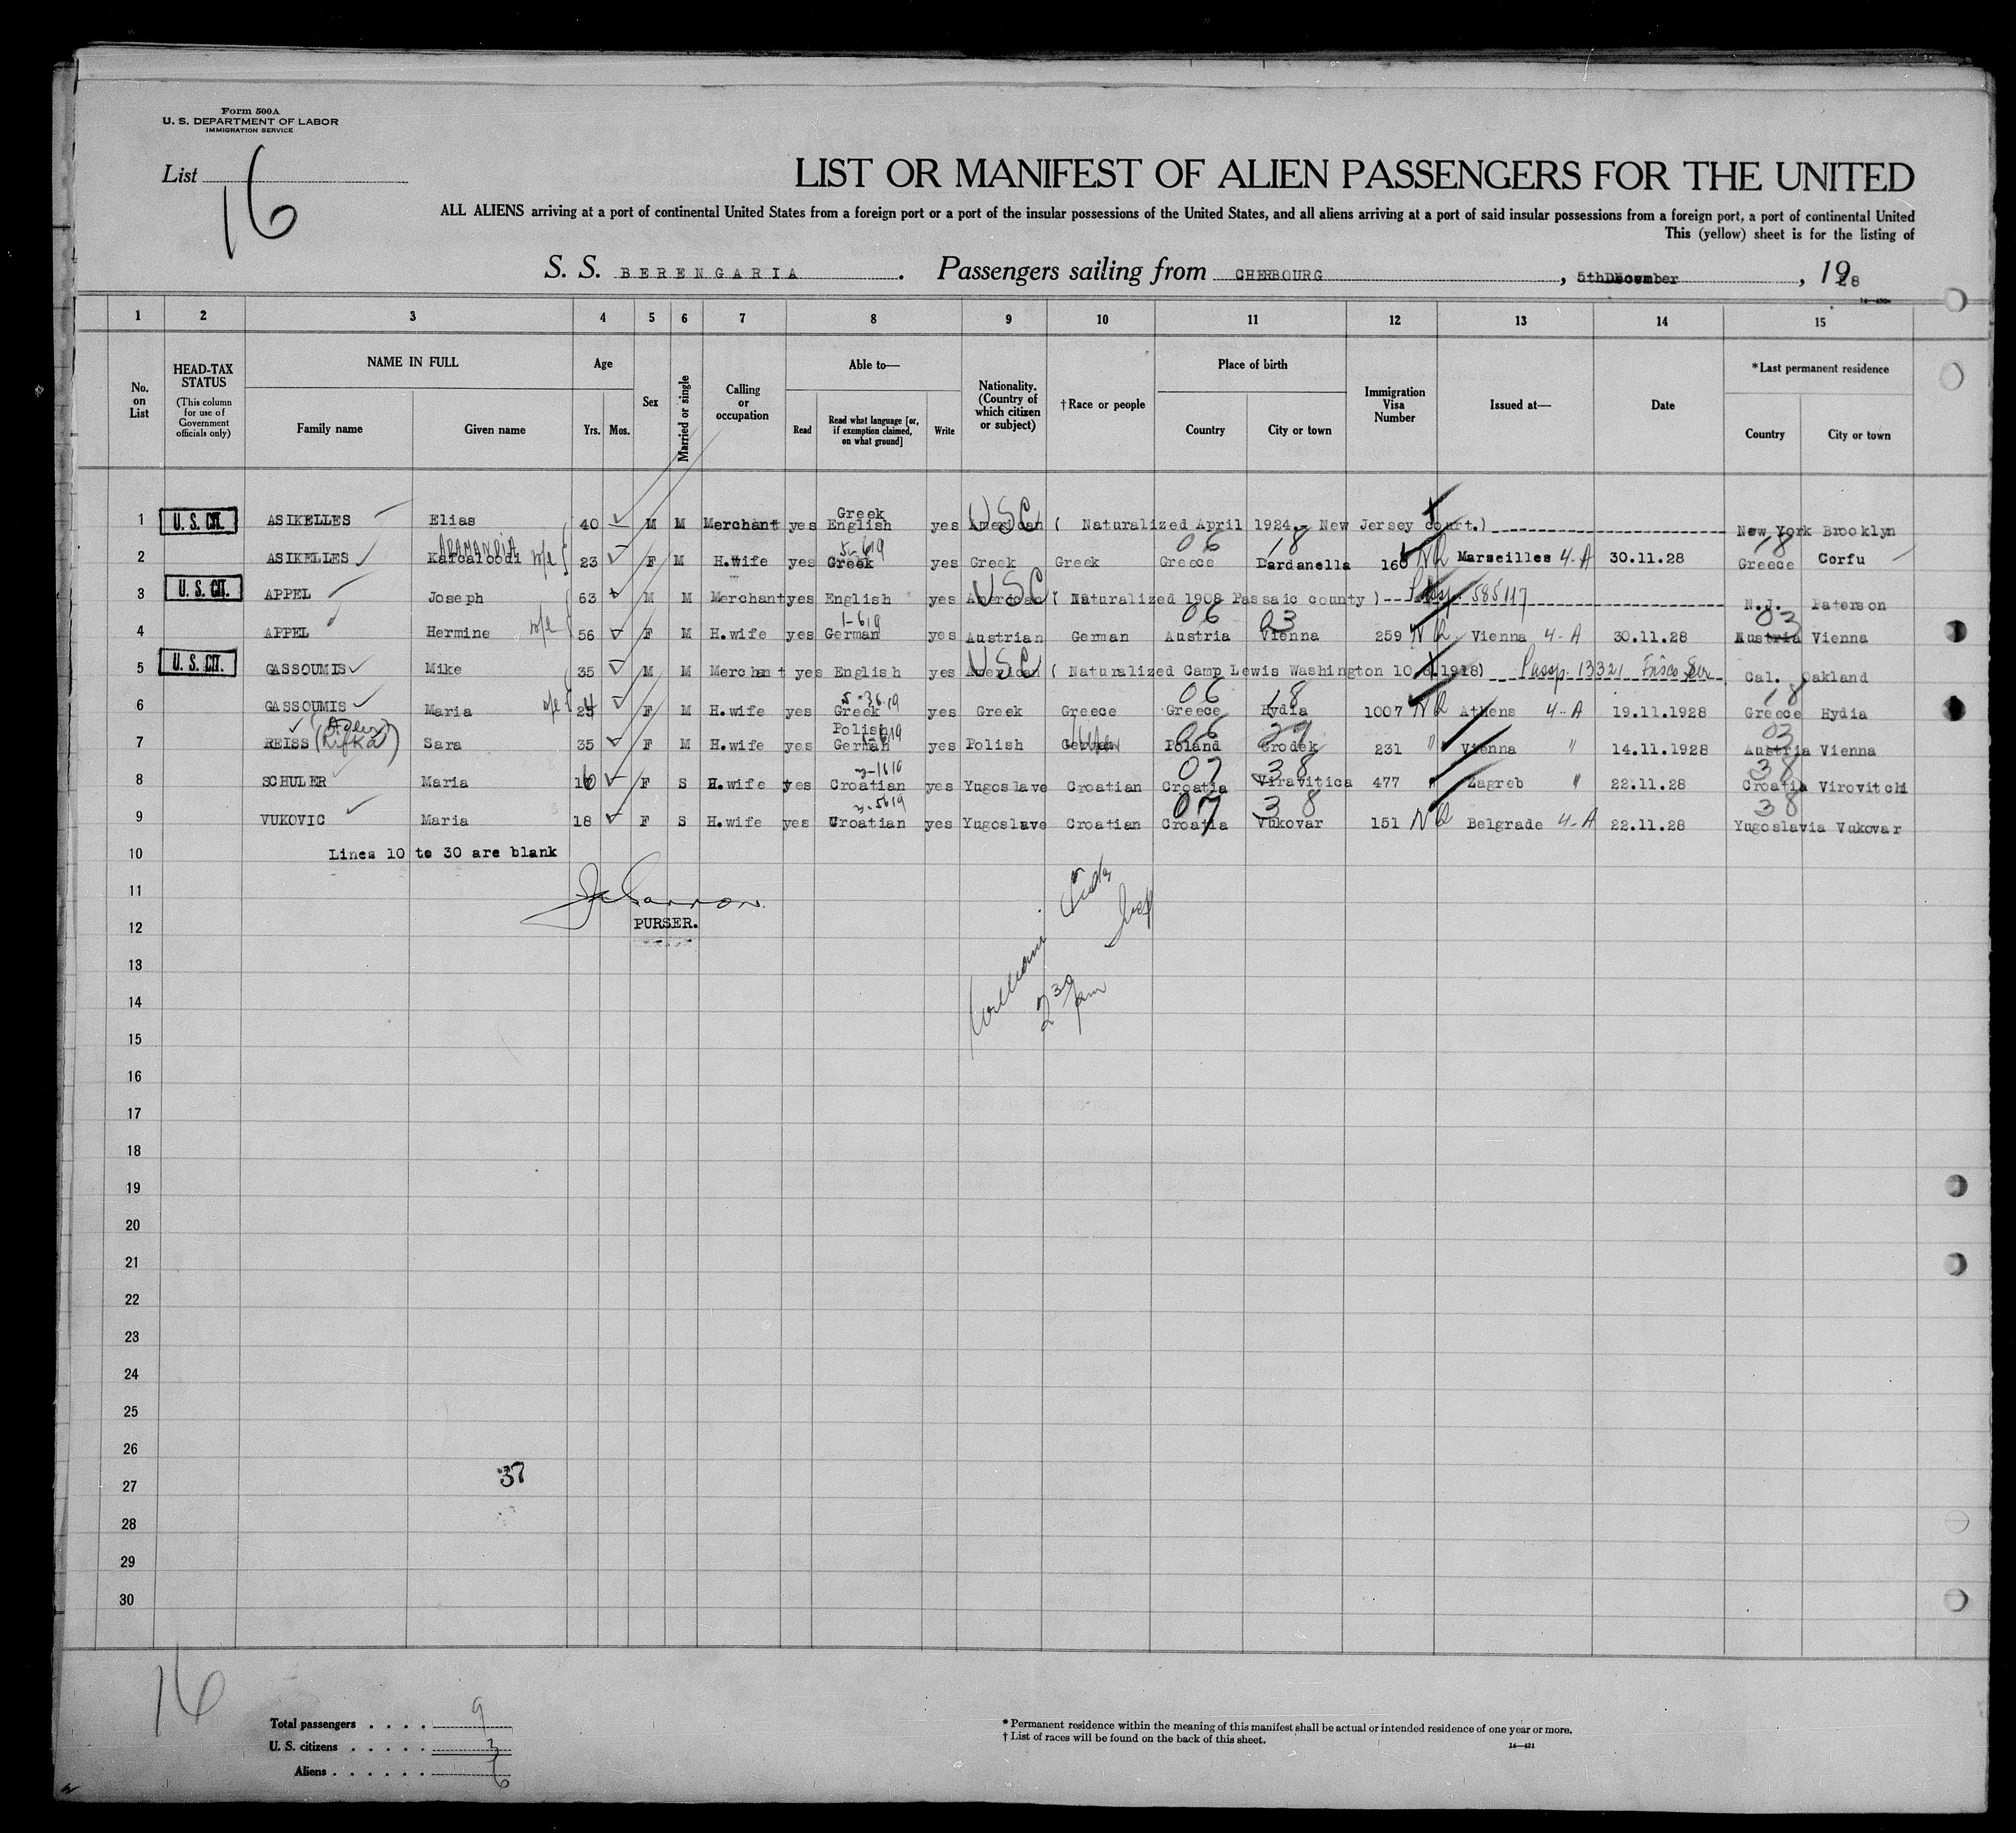 Form 500A
U. S. DEPARTMENT OF LABOR
IMMIGRATION SERVICE
List 16
LIST OR MANIFEST OF ALIEN PASSENGERS FOR THE UNITED
ALL ALIENS arriving at a port of continental United States from a foreign port or a port of the insular possessions of the United States, and all aliens arriving at a port of said insular possessions from a foreign port, a port of continental United
This (yellow) sheet is for the listing of
S. S. BERENGARIA . Passengers sailing from CHERBOURG , 5th December , 1928
1 2 3 4 5 6 7 8 9 10 11 12 13 14 15
No. on List
HEAD-TAX STATUS (This column for use of Government officials only)
NAME IN FULL
Family name Given name
Age
Yrs. Mos.
Sex
Married or single
Calling or occupation
Able to—
Read Read what language [or, if exemption claimed, on what ground] Write
Nationality. (Country of which citizen or subject)
†Race or people
Place of birth
Country City or town
Immigration Visa Number
Issued at—
Date
*Last permanent residence
Country City or town
1 U. S. CIT. ASIKELLES Elias 40 M M Merchant yes Greek English yes American USC ( Naturalized April 1924, New Jersey court.) New York Brooklyn
2 ASIKELLES ADAMANDIA 23 F M H.wife yes Greek 5-619 yes Greek Greek Greece 06 Dardanella 18 160 NQ Marseilles 4-A 30.11.28 Greece 18 Corfu
3 U. S. CIT. APPEL Joseph 63 M M Merchant yes English yes USC ( Naturalized 1908 Passaic county ) Pasp. 585117 N.J. Paterson
4 APPEL Hermine 56 F M H.wife yes German 1-619 yes Austrian German Austria 06 Vienna 03 259 NQ Vienna 4-A 30.11.28 Austria 03 Vienna
5 U. S. CIT. GASSOUMIS Mike 35 M M Merchant yes English yes American USC ( Naturalized Camp Lewis Washington 10. .1918) Passp. 13321 Frisco Cal. Oakland
6 GASSOUMIS Maria F M H.wife yes Greek yes Greek Greece Greece 06 Hydia 18 1007 NQ Athens 4-A 19.11.1928 Greece 18 Hydia
7 REISS (Adler) (Rifka) Sara 35 F M H.wife yes Polish German yes Polish Poland 06 Grodek 27 231 " Vienna " 14.11.1928 Austria 03 Vienna
8 SCHULER Maria 16 F S H.wife yes Croatian yes Yugoslave Croatian Croatia 07 Viravitica 38 477 " Zagreb " 22.11.28 Croatia 38 Virovitch
9 VUKOVIC Maria 18 F S H.wife yes Croatian yes Yugoslave Croatian Croatia 07 Vukovar 38 151 NQ Belgrade 4-A 22.11.28 Yugoslavia 38 Vukovar
10 Lines 10 to 30 are blank
11
12 PURSER.
13
14 2 30 pm
15
16
17
18
19
20
21
22
23
24
25
26
27 37
28
29
30
16
Total passengers . . . . 9
U. S. citizens . . . . . 3
Aliens . . . . . . 6
* Permanent residence within the meaning of this manifest shall be actual or intended residence of one year or more.
† List of races will be found on the back of this sheet.
14—431